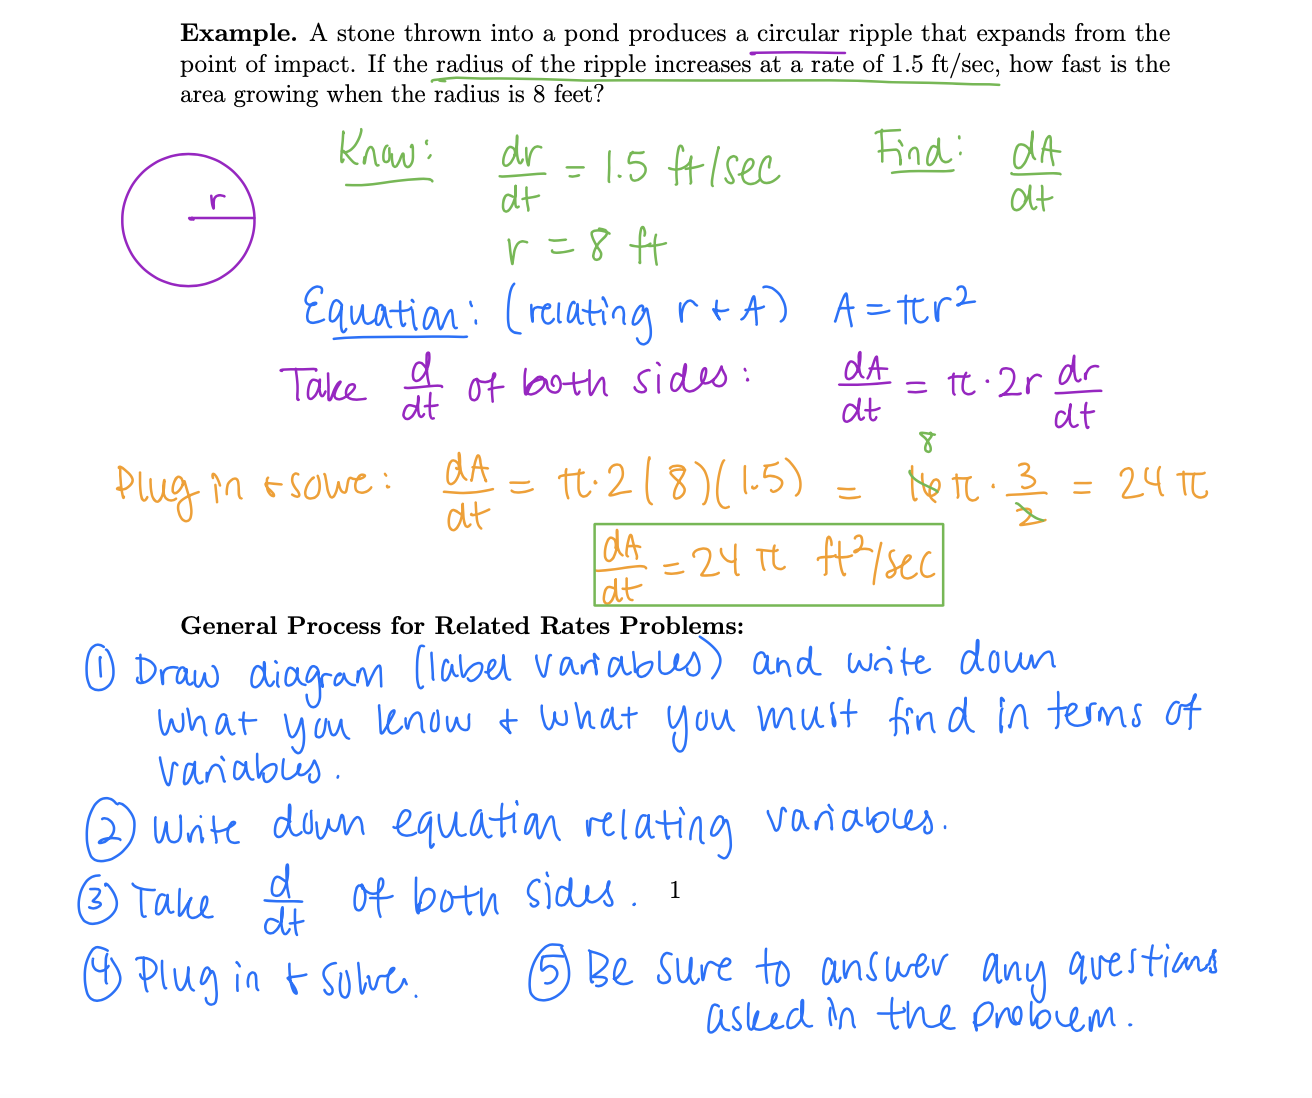 Example. A stone thrown into a pond produces a circular ripple that expands from the
point of impact. If the radius of the ripple increases at a rate of 1.5 ft/sec, how fast is the
area growing when the radius is 8 feet?
Know: dr/dt = 1.5 ft/sec Find: dA/dt
r
r = 8 ft
Equation: (relating r + A) A = πr²
Take d/dt of both sides: dA/dt = π·2r dr/dt
Plug in + solve: dA/dt = π·2(8)(1.5) = 16π · 3/2 = 24π
8
dA/dt = 24π ft²/sec
General Process for Related Rates Problems:
① Draw diagram (label variables) and write down
what you know + what you must find in terms of
variables.
② Write down equation relating variables.
③ Take d/dt of both sides. 1
④ Plug in + solve. ⑤ Be sure to answer any questions
asked in the problem.